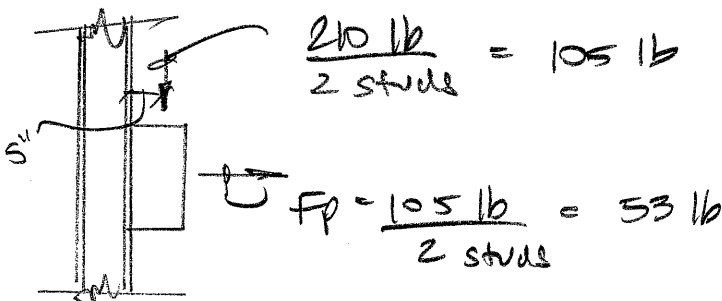 210 lb
2 studs = 105 lb
5"
Fp = 105 lb
2 studs = 53 lb